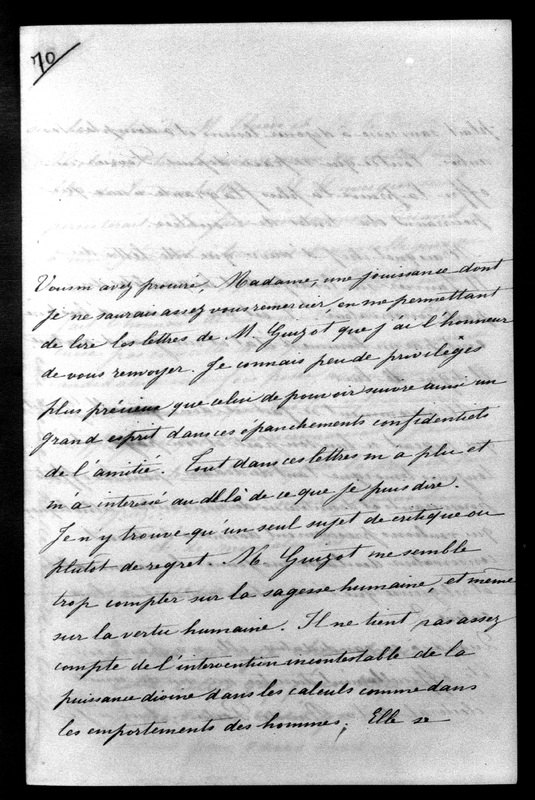 70
Vous m'avez procuré, Madame, une jouissance dont
je ne saurais assez vous remercier, en me permettant
de lire les lettres de M. Guizot que j'ai l'honneur
de vous renvoyer. Je connais peu de privilèges
plus précieux que celui de pouvoir suivre ainsi un
grand esprit dans ces épanchements confidentiels
de l'amitié. Tout dans ces lettres m'a plu et
m'a intéressé au delà de ce que je puis dire.
Je n'y trouve qu'un seul sujet de critique ou
plutot de regret. M. Guizot me semble
trop compter sur la sagesse humaine, et même
sur la vertu humaine. Il ne tient pas assez
compte de l'intervention incontestable de la
puissance divine dans les calculs comme dans
les emportements des hommes; Elle se